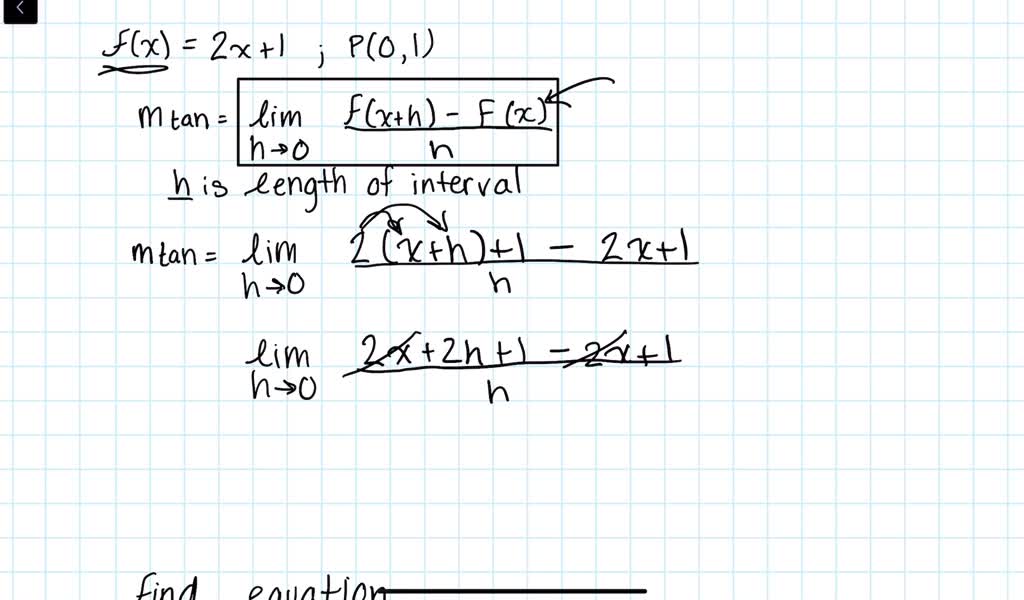 f(x) = 2x+1 ; P(0,1)
m tan = lim h→0 f(x+h) - F(x) / h
h is length of interval
m tan = lim h→0 2(x+h)+1 - 2x+1 / h
lim h→0 2x+2h+1 - 2x+1 / h
find equation